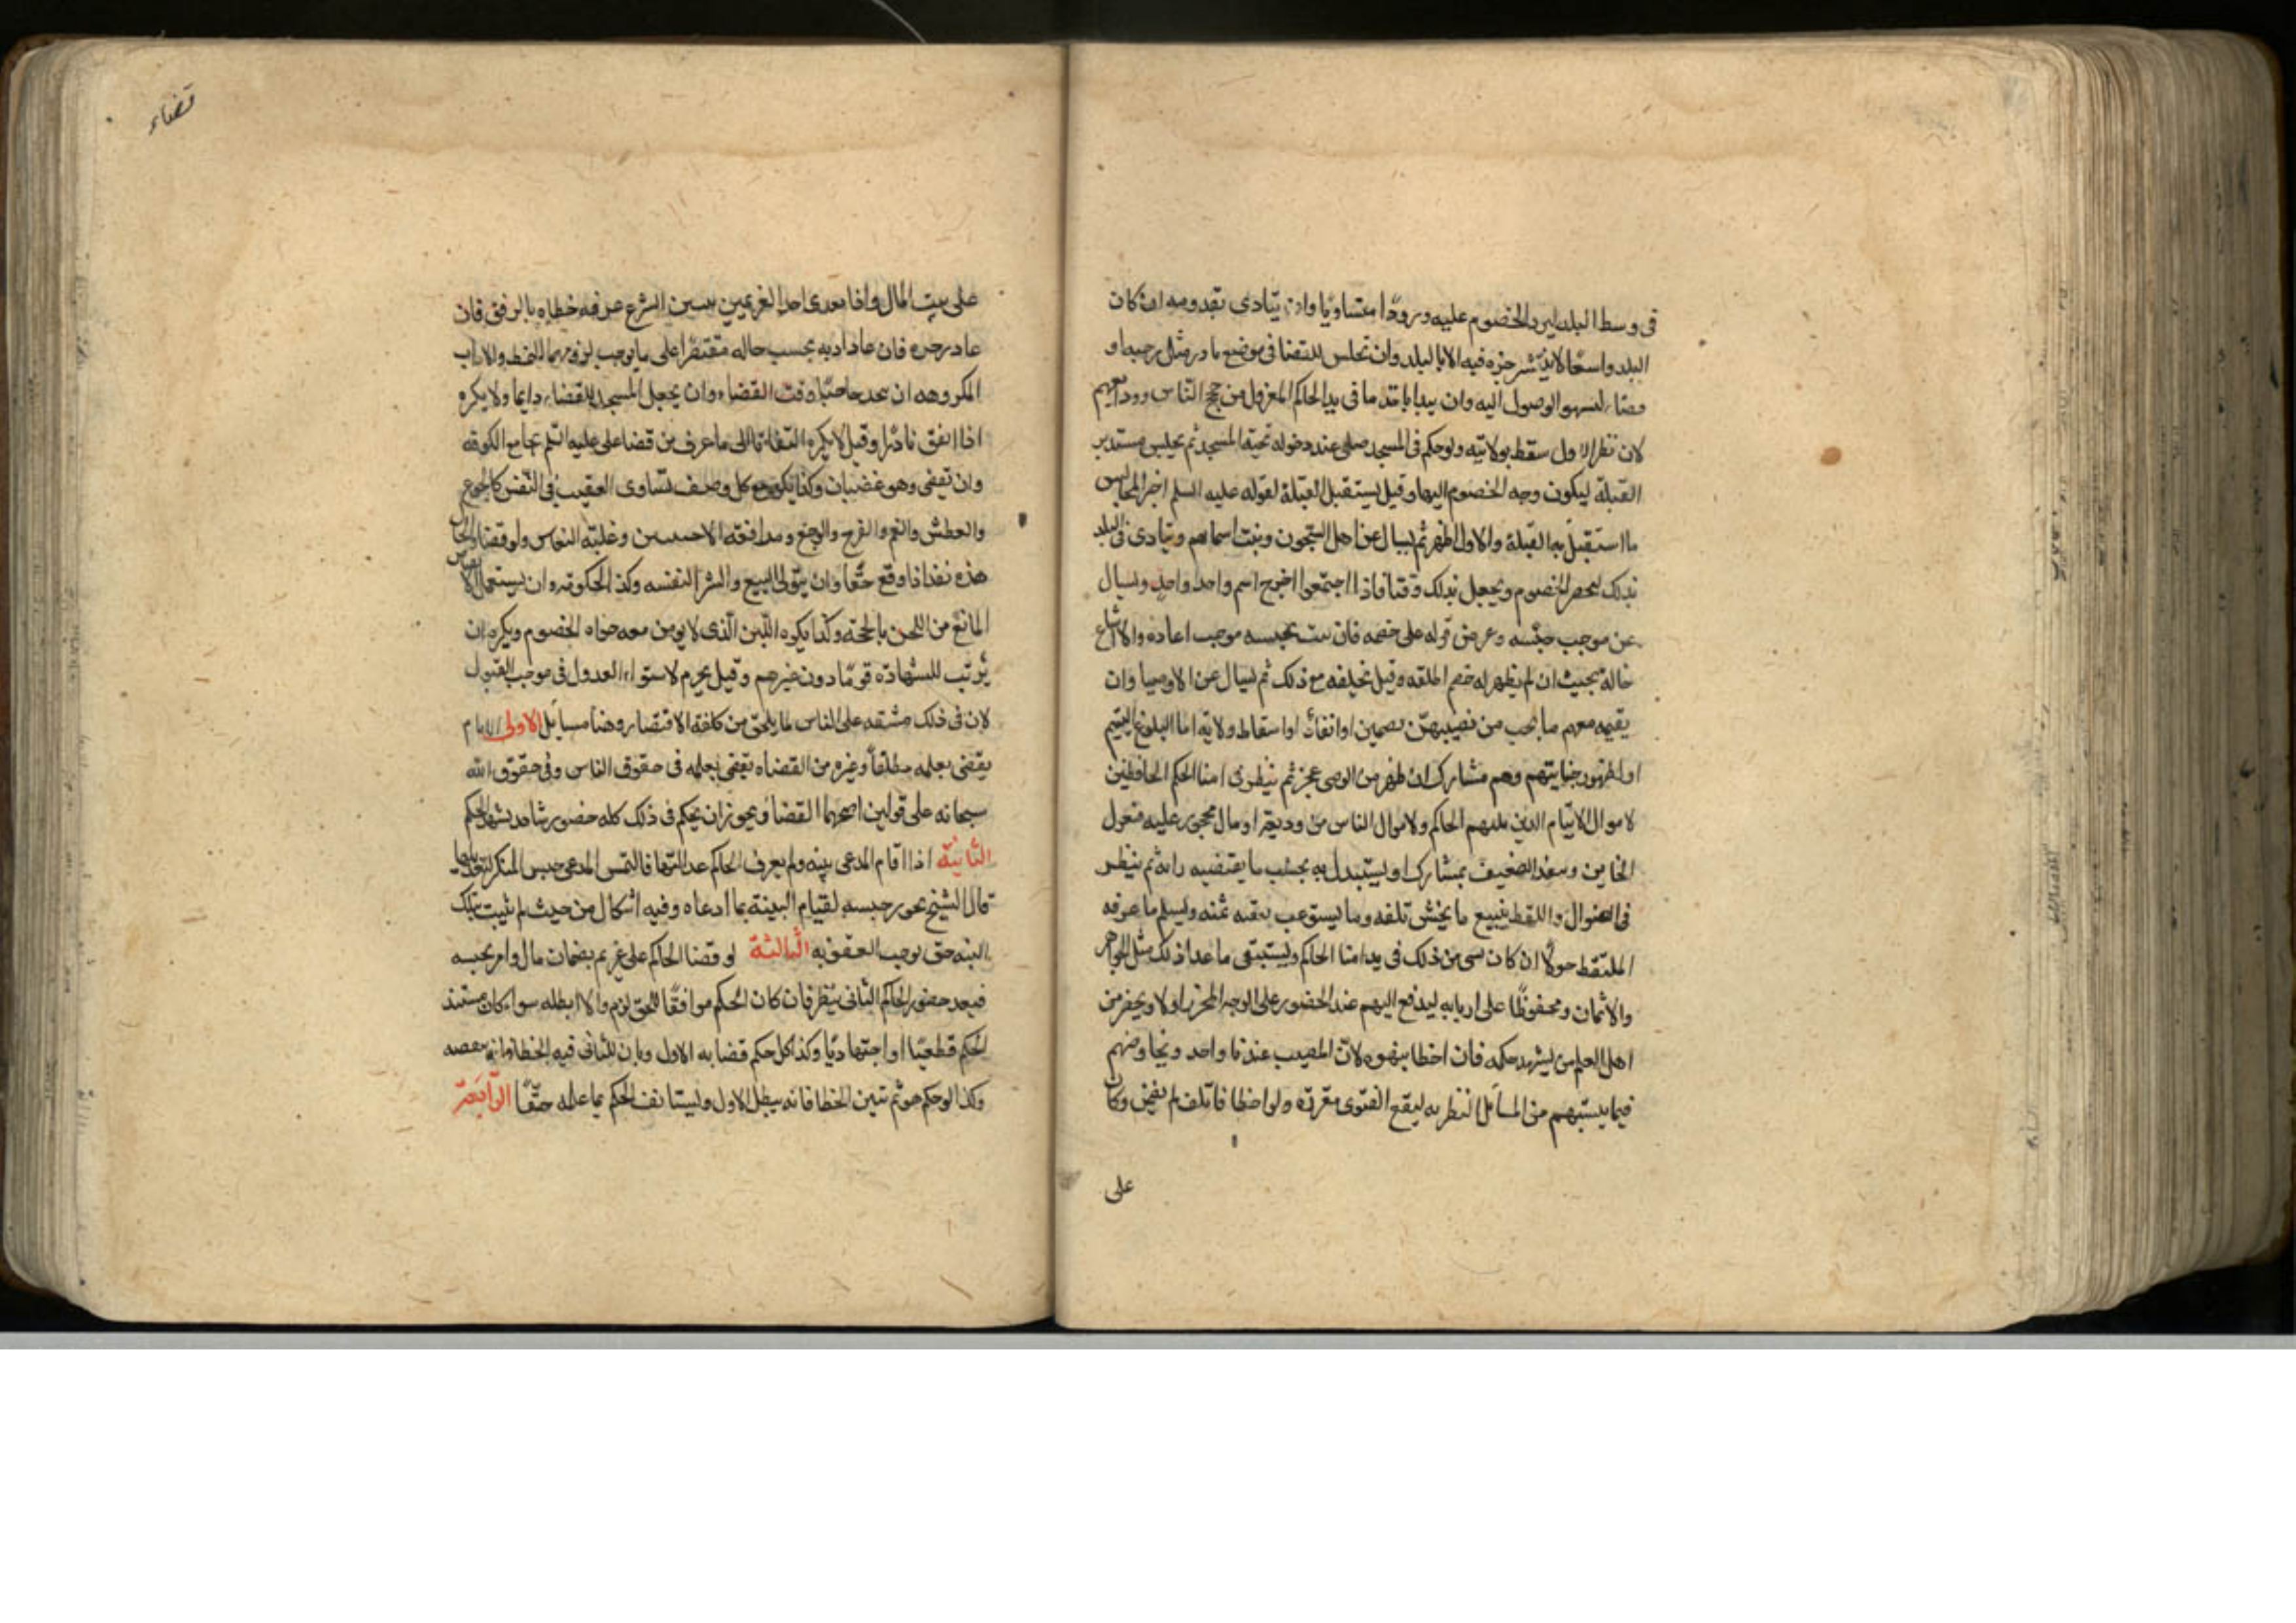 فى وسط البلد ليرد الخصوم عليه ورودًا متساويًا وان ينادى بقدومه ان كان
البلد واسعًا لا ينشر خبره فيه الا بالبلد وان يجلس للقضا فى موضع بارز مثل رحبه او
فضاء ليسهل الوصول اليه وان يبدا باخذ ما فى يد الحاكم المعزول من حجج الناس وودايعهم
لان نظر الاول سقط بولايته ولو حكم فى المسجد صلى عند دخوله تحية المسجد ثم يجلس مستدبر
القبلة ليكون وجه الخصوم اليها وقيل يستقبل القبلة لقوله عليه السلم خير المجالس
ما استقبل به القبلة والاول اظهر ثم يسال عن اهل السجون ويثبت اسماهم وينادى فى البلد
بذلك ليحضر الخصوم ويجعل لذلك وقتا فاذا اجتمعوا اخرج اسم واحد واحد ويسال
عن موجب حبسه وعرض قوله على خصمه فان ثبت لحبسه موجب اعاده والا اشاع
حاله بحيث ان لم يظهر له خصم اطلقه وقيل يحلفه مع ذلك ثم يسال عن الاوصيا وان
يقيمه معهم ما يجب من تضمين او انفاذ او اسقاط ولاية اما البلوغ اليتيم
او لظهور خيانتهم وهم مشارك ان ظهر من الوصى عجز ثم ينظر فى امنا الحكم الحافظين
لاموال الايتام الذين يليهم الحاكم ولاموال الناس من وديعة او مال محجور عليه فيعزل
الخاين ويسعد الضعيف بمشارك او يستبدل به بحسب ما يقتضيه رايه ثم ينظر
فى الضوال واللقط فيبيع ما يخشى تلفه وما يستوعب نفقه ثمنه ويسلم ما عرفه
الملتقط حولاً ان كان شى من ذلك فى يد امنا الحاكم ويستبقى ما عدا ذلك مثل الجواهر
والاثمان ومحفوظًا على اربابه ليدفع اليهم عند الحضور على الوجه المحرر اولا ويحضر من
اهل العلم من يشهد حكمه فان اخطا ينبهوه لان المصيب عندنا واحد ويخاوضهم
فيما يستبهم من المسائل النظريه ليقع الفتوى مقررة ولو اخطا فاتلف لم يضمن وكان
على
قضاء
على بيت المال واذا تعدى احد الغريمين سنن الشرع عرفه خطاه بالرفق فان
عاد زجره فان عاد ادبه بحسب حاله مقتصرًا على ما يوجب لزوم النمط والاداب
المكروهه ان يتخذ حاجبًا وقت القضاء وان يجعل المسجد للقضاء دايما ولا يكره
اذا اتفق نادرًا وقيل لا يكره التفاتا الى ما عرف من قضا على عليه السلم بجامع الكوفه
وان يقضى وهو غضبان وكذا يكره مع كل وصف يساوى الغضب فى النفس كالجوع
والعطش والغم والفرح والوجع ومدافعة الاخبثين وغلبة النعاس ولو قضا والحال
هذه نفذ اذا وقع حقًا وان يتولى البيع والشرا لنفسه وكذا الحكومه وان يستعمل الانقباض
المانع من اللحن بالحجة وكذا يكره اللين الذى لا يومن معه جراه الخصوم ويكره ان
يرتب للشهادة قومًا دون غيرهم وقيل يحرم لاستواء العدول فى موجب القبول
لان فى ذلك مشقه على الناس ما يلحق من كلفة الاقتصار وهنا مسايل الاولى الامام
يقضى بعلمه مطلقاً وغيره من القضاه يقضى بعلمه فى حقوق الناس وفى حقوق الله
سبحانه على قولين اصحهما القضا ويجوز ان يحكم فى ذلك كله حضور شاهد يشهد الحكم
الثانية اذا اقام المدعى بينه ولم يعرف الحاكم عدالتها فالتمس المدعى حبس المنكر ليعدلها
قال الشيخ يجوز حبسه لقيام البينة بما ادعاه وفيه اشكال من حيث لم يثبت بتلك
البينه حق يوجب العقوبه الثالثة لو قضا الحاكم على غريم بضمان مال وامر بحبسه
فبعد حضور الحاكم الثانى ينظر فان كان الحكم موافقًا للحق لزم والا ابطله سواء كان مستند
الحكم قطعيًا او اجتهاديًا وكذا كل حكم قضا به الاول وبان للثانى فيه الخطا فانه ينقضه
وكذا لو حكم هو ثم تبين الخطا فانه يبطل الاول ويستانف الحكم بما علمه حقًا الرابعة